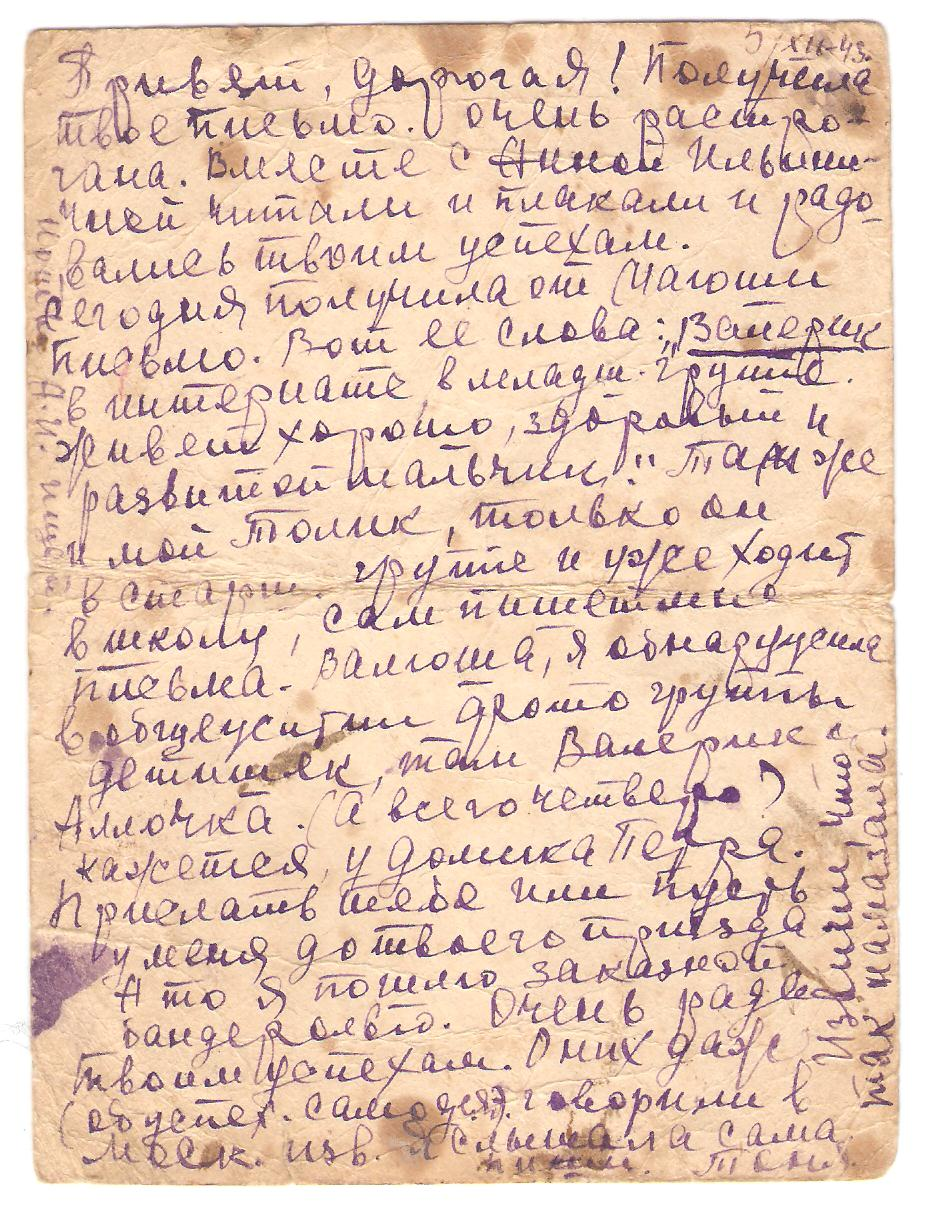 5/XII-43.
Привет, дорогая! Получила
твое письмо. Очень растро-
гана. Вместе с Анной Ильини-
чной читали и плакали и радо-
вались твоим успехам.
Сегодня получила от Магоши
письмо. Вот ее слова: „Валерик
в интернате в младш. группе.
Живет хорошо, здоровый и
развитой мальчик". Так же
и мой Толик, только он
в старш. группе и уже ходит
в школу, сам пишет мне
письма. Валюша, я обнаружила
в общежитии фото группы
детишек, там Валерик и
Аллочка. (А всего четверо)
кажется, у домика Петра.
Прислать тебе или пусть
у меня до твоего приезда
А то я пошлю заказной
бандеролью. Очень рада
твоим успехам. О них даже
(об успех. самодеят). говорили в
Моск. изв. Я слышала сама.
пиши. Тоня.
Извини, что
так намазала.
А.И. пишет.